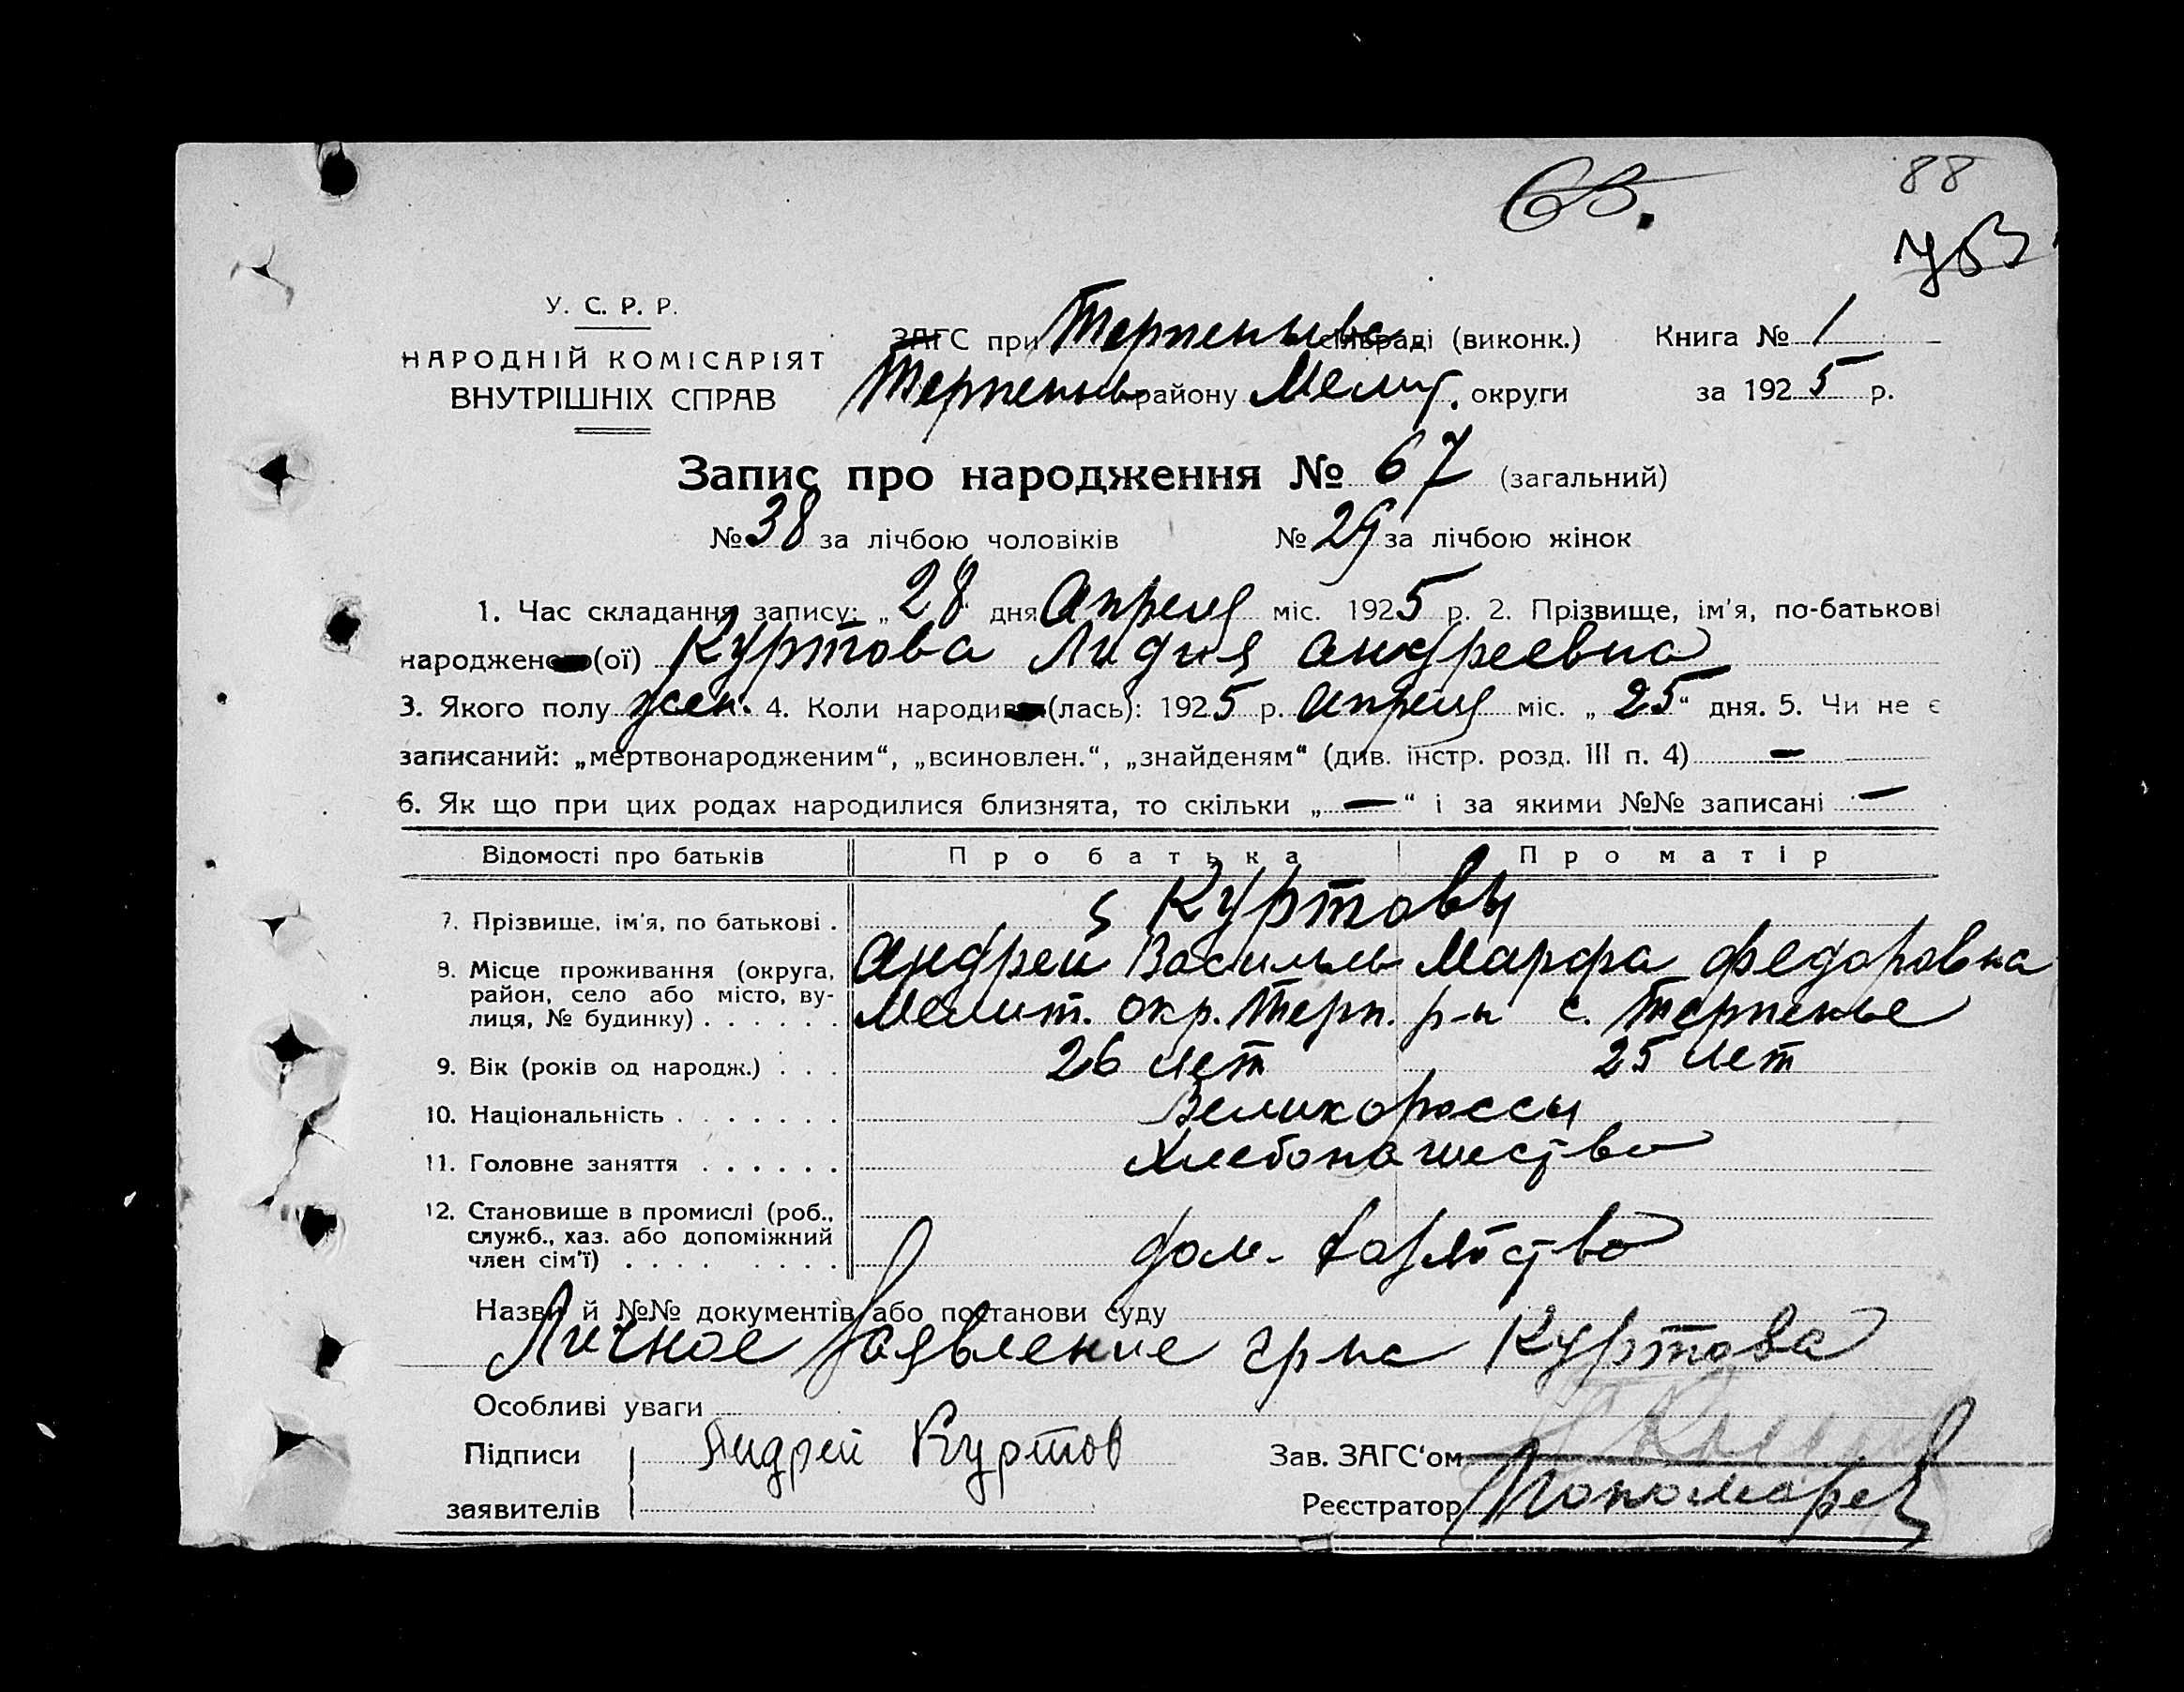 63.
88
У. С. Р. Р.
НАРОДНІЙ КОМІСАРІЯТ
ВНУТРІШНІХ СПРАВ
ЗАГС при Терпеньев. сільраді (виконк.) Книга № 1
Терпеньев району Мелит. округи за 1925 р.
Запис про народження № 67 (загальний)
№ 38 за лічбою чоловіків № 29 за лічбою жінок
1. Час складання запису: „28" дня Апреля міс. 1925 р. 2. Прізвище, ім'я, по-батькові
народжен (ої) Куртова Лидия Андреевна
3. Якого полу жен. 4. Коли народив (лась): 1925 р. Апреля міс. „25" дня. 5. Чи не є
записаний: „мертвонародженим", „всиновлен.", „знайденям" (див. інстр. розд. III п. 4) —
6. Як що при цих родах народилися близнята, то скільки „—" і за якими №№ записані —
Відомості про батьків Про батька Про матір
7. Прізвище, ім'я, по батькові . Куртовы
Андрей Василь Марфа Федоровна
8. Місце проживання (округа,
район, село або місто, ву-
лиця, № будинку) . . . . . . Мелит. окр. Терп. р-н с. Терпенье
9. Вік (років од народж.) . . . 26 лет 25 лет
10. Національність . . . . . . . Великороссы
11. Головне заняття . . . . . . Хлебопашество
12. Становище в промислі (роб.,
служб., хаз. або допоміжний
член сім'ї) . . . . . . . . дом.
Назви й №№ документів або постанови суду
Личное заявление гр-на Куртова
Особливі уваги
Підписи Андрей Куртов Зав. ЗАГС'ом
заявителів Реєстратор Пономарев